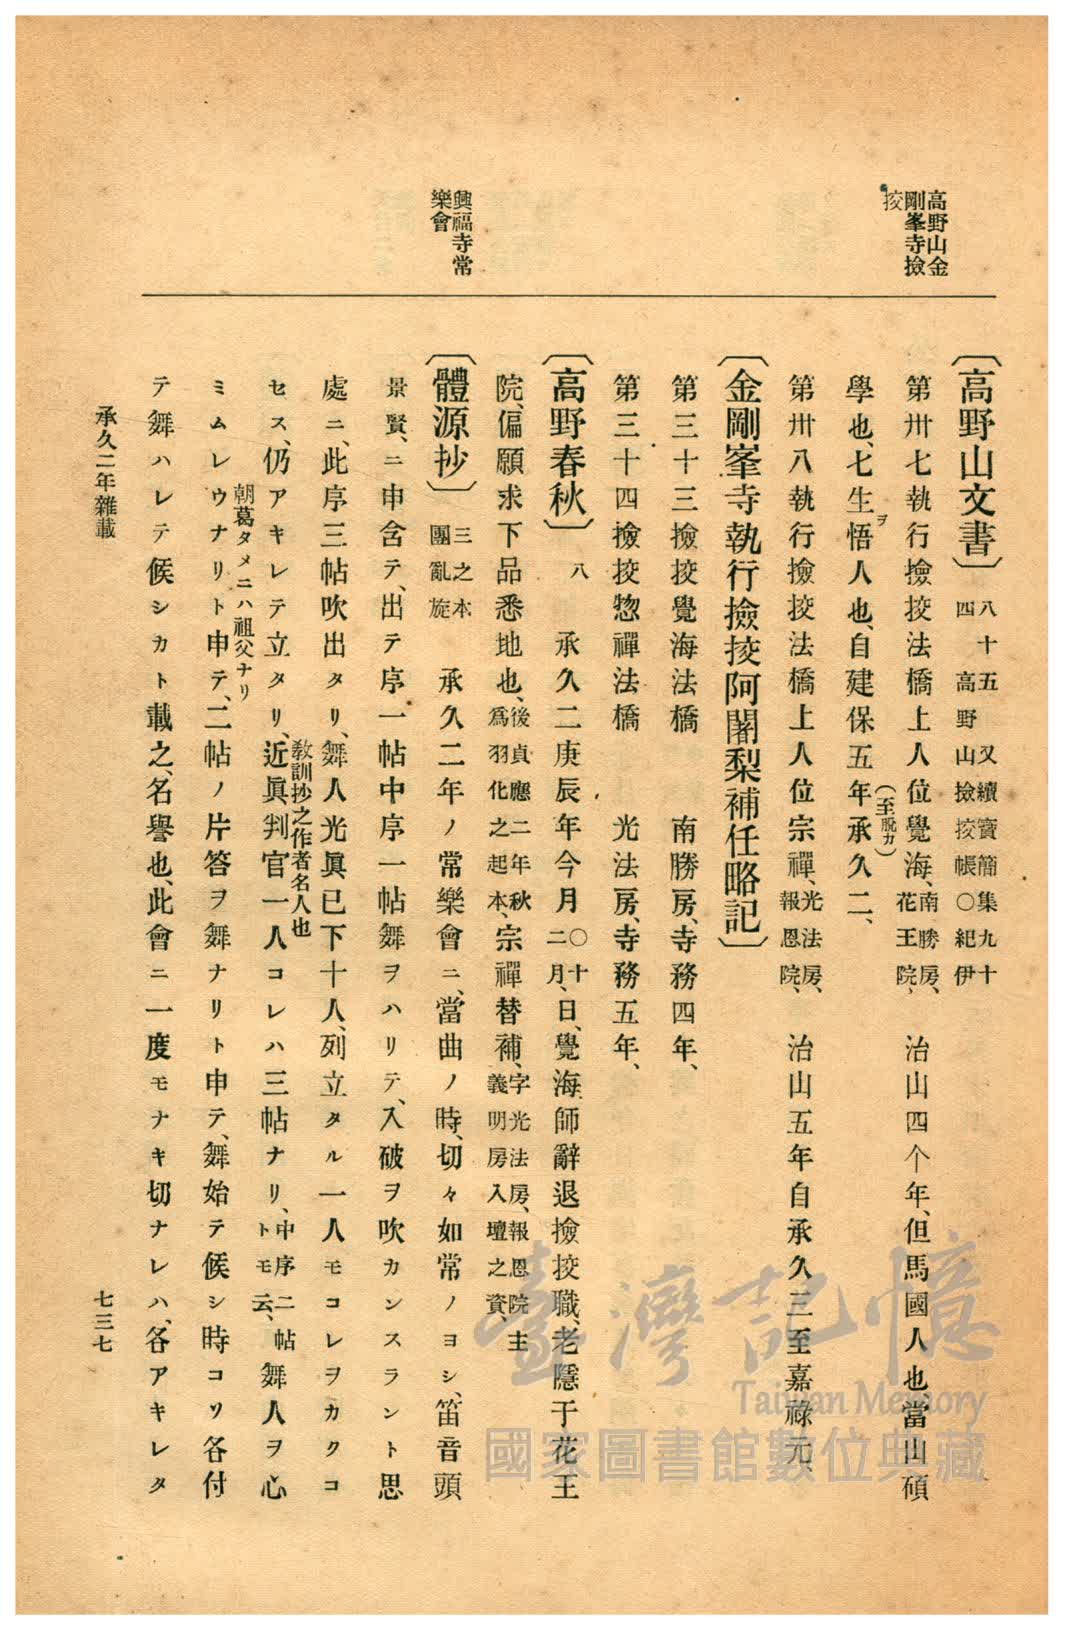 高野山金
剛峯寺撿
挍
興福寺常
樂會
〔高野山文書〕 八十五 又續寶簡集九十
四 高野山撿挍帳〇紀伊
第卅七執行撿挍法橋上人位覺海、南勝房、
花王院、 治山四个年、但馬國人也、當山碩
學也、七生悟人也、自建保五年承久二、
ヲ
(至脱カ)
第卅八執行撿挍法橋上人位宗禪、光法房、
報恩院、 治山五年自承久三至嘉祿元、
〔金剛峯寺執行撿挍阿闍梨補任略記〕
第三十三撿挍覺海法橋 南勝房、寺務四年、
第三十四撿挍惣禪法橋 光法房、寺務五年、
〔高野春秋〕 八 承久二庚辰年今月〇十
二月、日、覺海師辭退撿挍職、老隱于花王
院、偏願求下品悉地也、後貞應二年秋
爲羽化之起本、宗禪替補、字光法房、報恩院主
義明房入壇之資、
〔體源抄〕 三之本
團亂旋 承久二年ノ常樂會ニ、當曲ノ時、切々如常ノヨシ、笛音頭
景賢、ニ申含テ、出テ序一帖中序一帖舞ヲハリテ、入破ヲ吹カンスラント思
處ニ、此序三帖吹出タリ、舞人光眞已下十人、列立タル一人モコレヲカクコ
敎訓抄之作者名人也
セス、仍アキレテ立タリ、近眞判官一人コレハ三帖ナリ、中序二帖
トモ云、 舞人ヲ心
朝葛タメニハ祖父ナリ
ミムレウナリト申テ、二帖ノ片答ヲ舞ナリト申テ、舞始テ候シ時コソ各付
テ舞ハレテ候シカト載之、名譽也、此會ニ一度モナキ切ナレハ、各アキレタ
承久二年雜載
七三七
臺灣記憶
Taiwan Memory
國家圖書館數位典藏